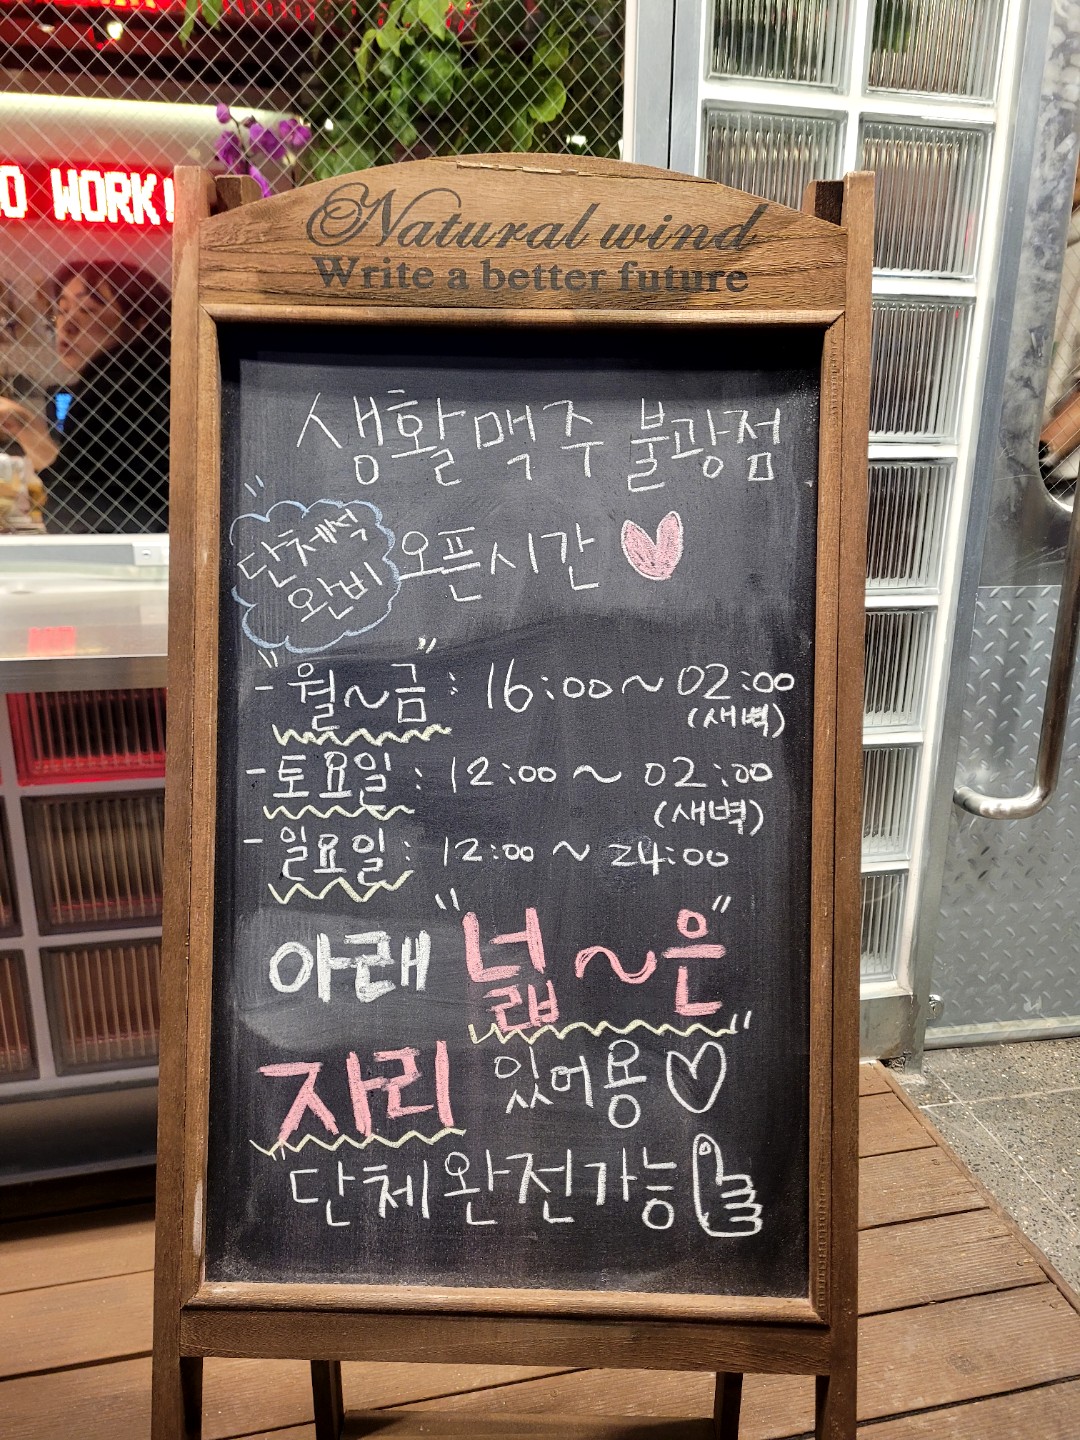 O WORK!
Natural wind
Write a better future
생활맥주 불광점
단체석
완비
오픈시간
- "월~금" : 16:00 ~ 02:00
(새벽)
- 토요일 : 12:00 ~ 02:00
(새벽)
- 일요일 : 12:00 ~ 24:00
아래 "넓~은"
자리 있어용
단체완전가능